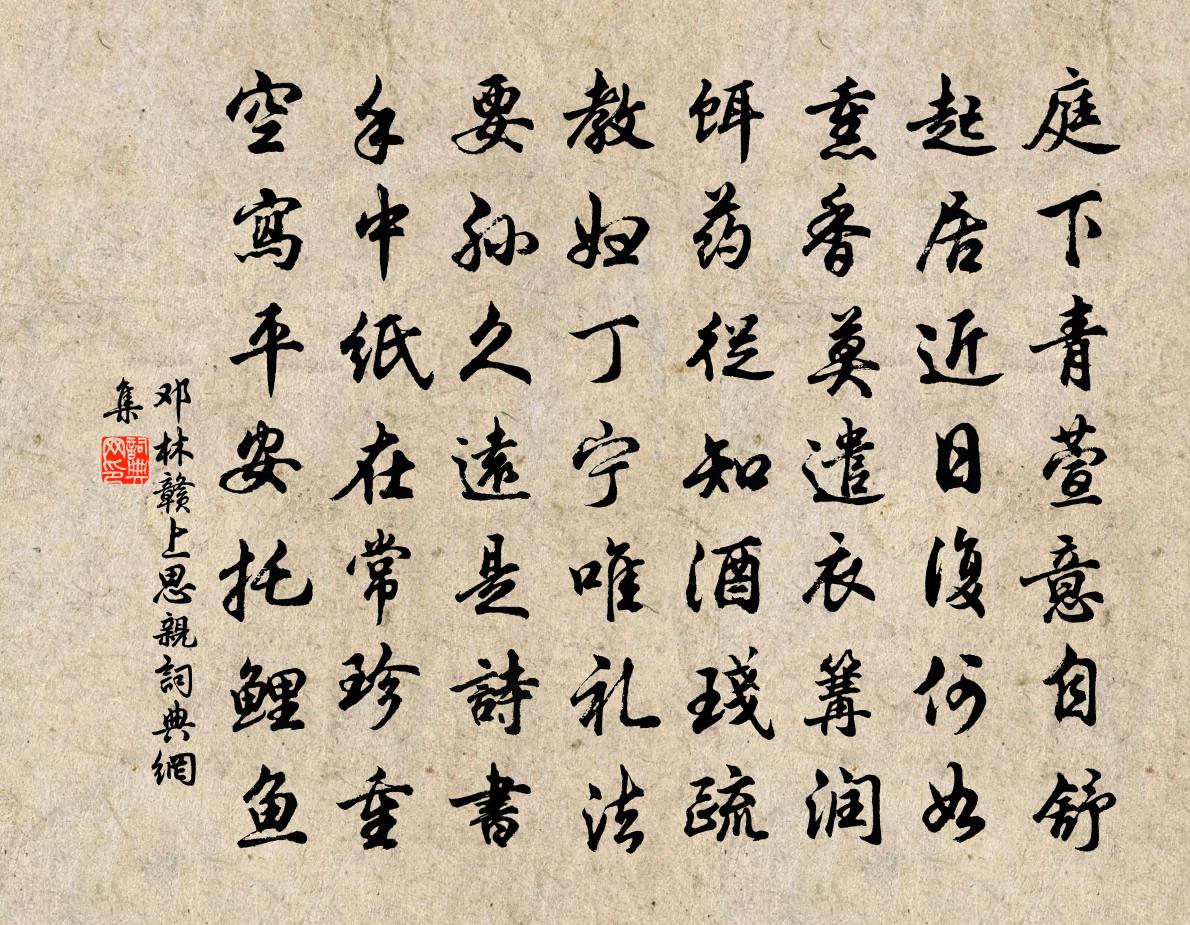 庭下青萱意自舒
起居近日復何如
熏香莫遣衣篝润
饵药從知酒琖疏
教妇丁宁唯礼法
要孙久遠是詩書
手中紙在常珍重
空寫平安托鲤鱼
邓林赣上思親詞典網
集
詞典
网印